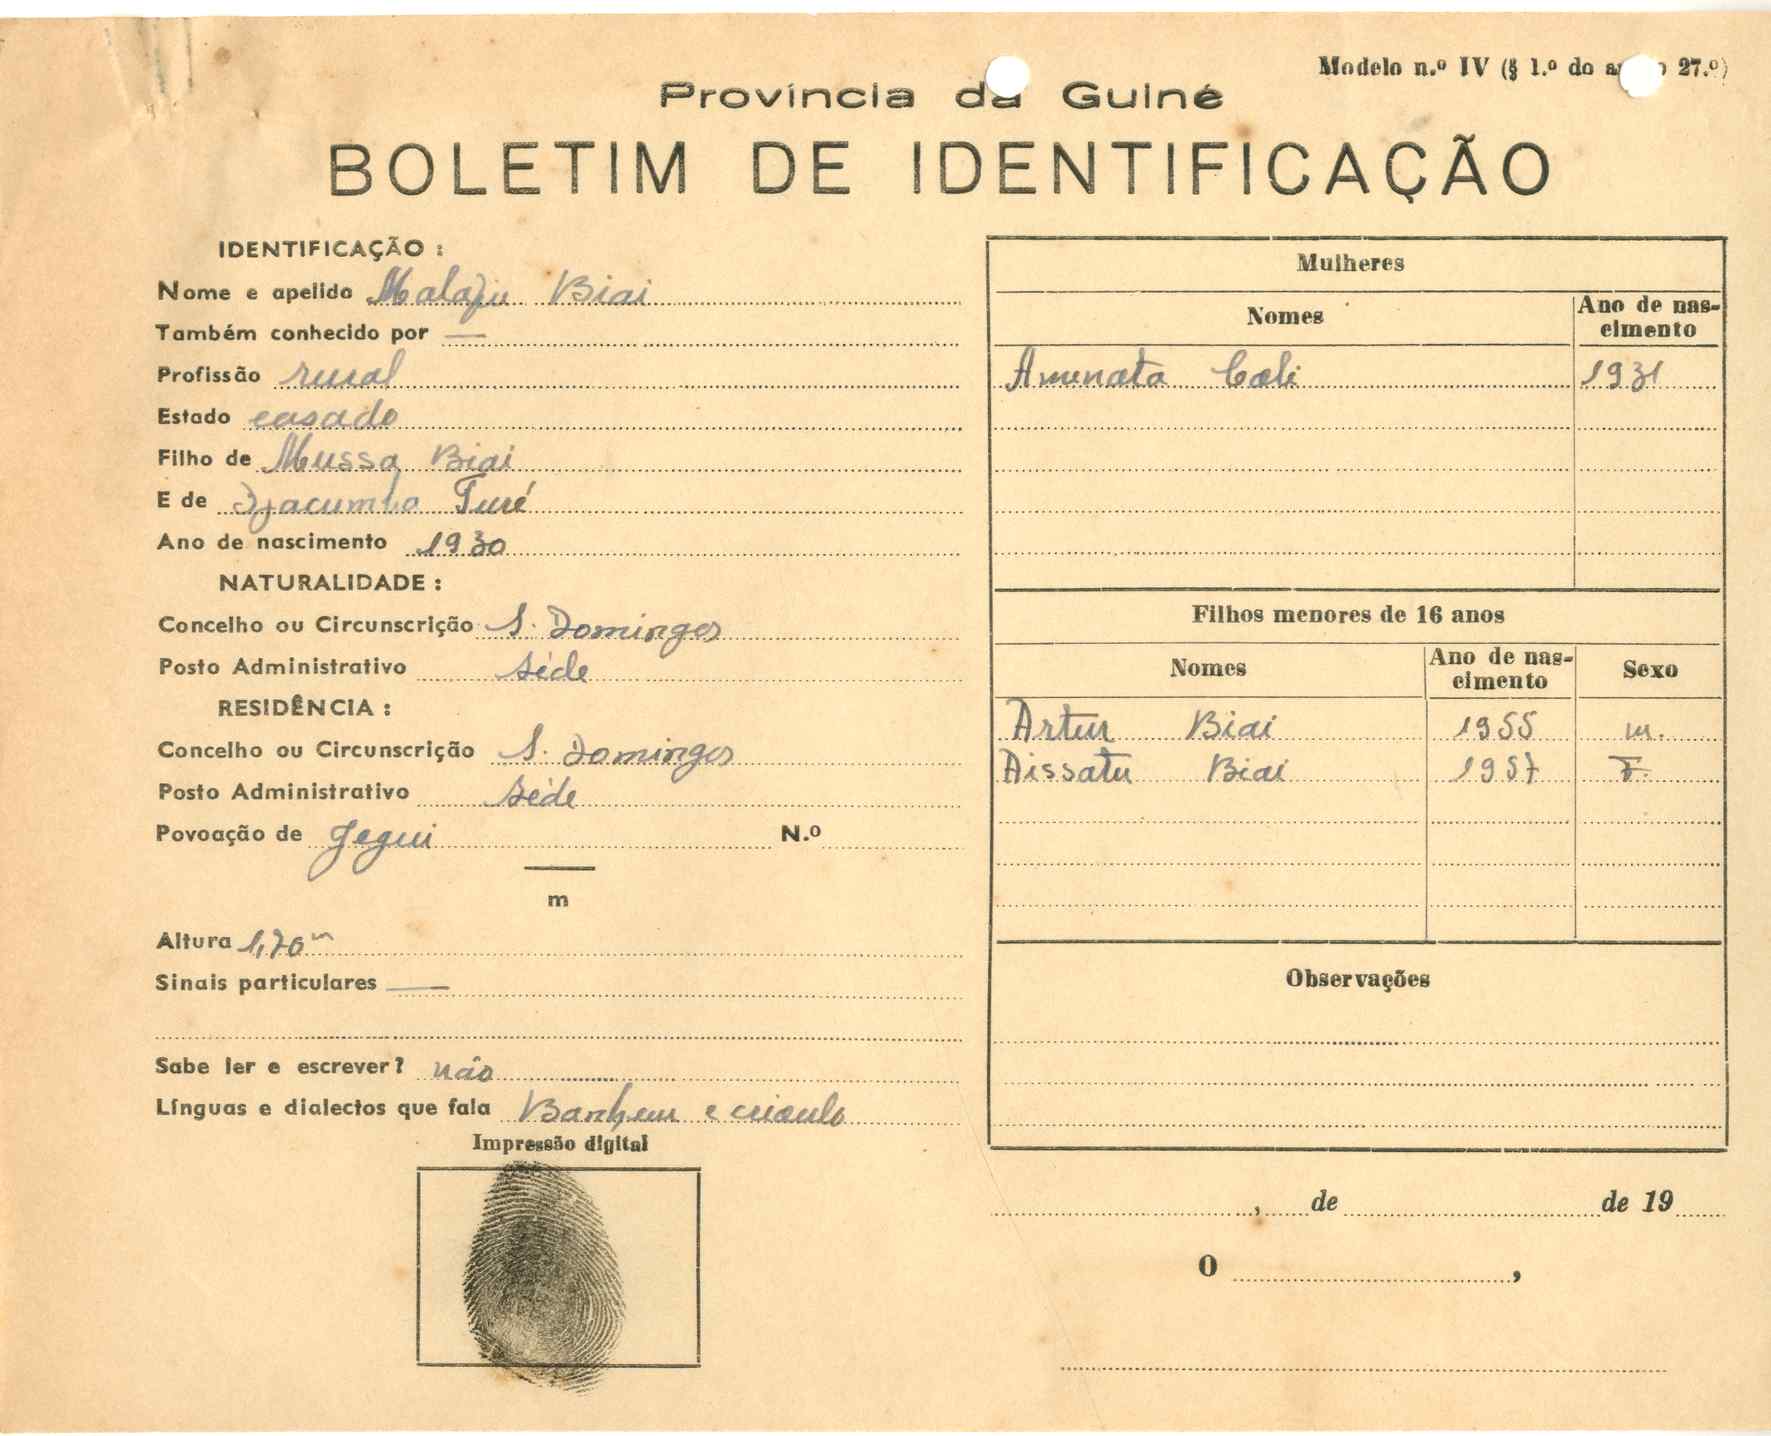 Modelo n.º IV (§ 1.º do 27.º)
Província da Guiné
BOLETIM DE IDENTIFICAÇÃO
IDENTIFICAÇÃO :
Nome e apelido Biai
Também conhecido por —
Profissão rural
Estado casado
Filho de Mussa Biai
E de Turé
Ano de nascimento 1930
NATURALIDADE :
Concelho ou Circunscrição S. Domingos
Posto Administrativo séde
RESIDÊNCIA :
Concelho ou Circunscrição S. Domingos
Posto Administrativo séde
Povoação de Jegui N.º
m
Altura 1,70 m
Sinais particulares —
Sabe ler e escrever? não
Línguas e dialectos que fala Banhum e crioulo
Impressão digital
Mulheres
Nomes Ano de nas-
cimento
Aminata 1931
Filhos menores de 16 anos
Nomes Ano de nas-
cimento Sexo
Artur Biai 1955 m.
Aissatu Biai 1957 F.
Observações
, de de 19
O ,